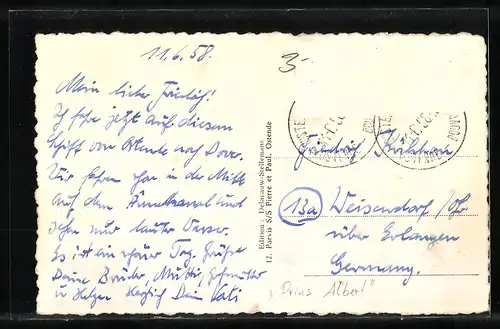 11.6.58.
Mein lieber Friedrich!
Ich fahre jetzt auf diesem
Schiff von Ostende nach Dover.
Wir fahren schon in der Mitte
auf dem Ärmelkanal und
sehen nur lauter Wasser.
Es ist ein schöner Tag. Grüße
Deine Brüder, Mutti,
u Helga Herzlich Dein Vati
Edition : Delacauw-Stellemans
12. Parvis S/S Pierre et Paul, Ostende
3-
POSTE
Friedrich
13a Weisendorf / Ofr
über Erlangen
Germany.
"Prins Albert"